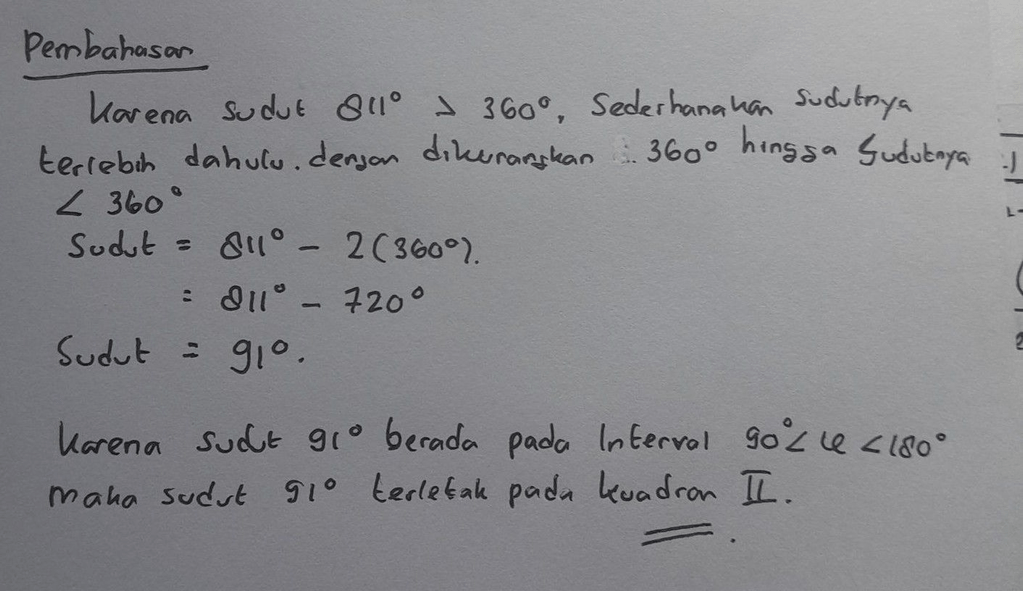 Pembahasan
Karena sudut 811° > 360°, Sederhanakan Sudutnya
terlebih dahulu. dengan dikurangkan 360° hingga Sudutnya
< 360°
Sudut = 811° - 2(360°).
= 811° - 720°
Sudut = 91°.
Karena sudut 91° berada pada Interval 90° < < 180°
maka sudut 91° terletak pada kuadran II.